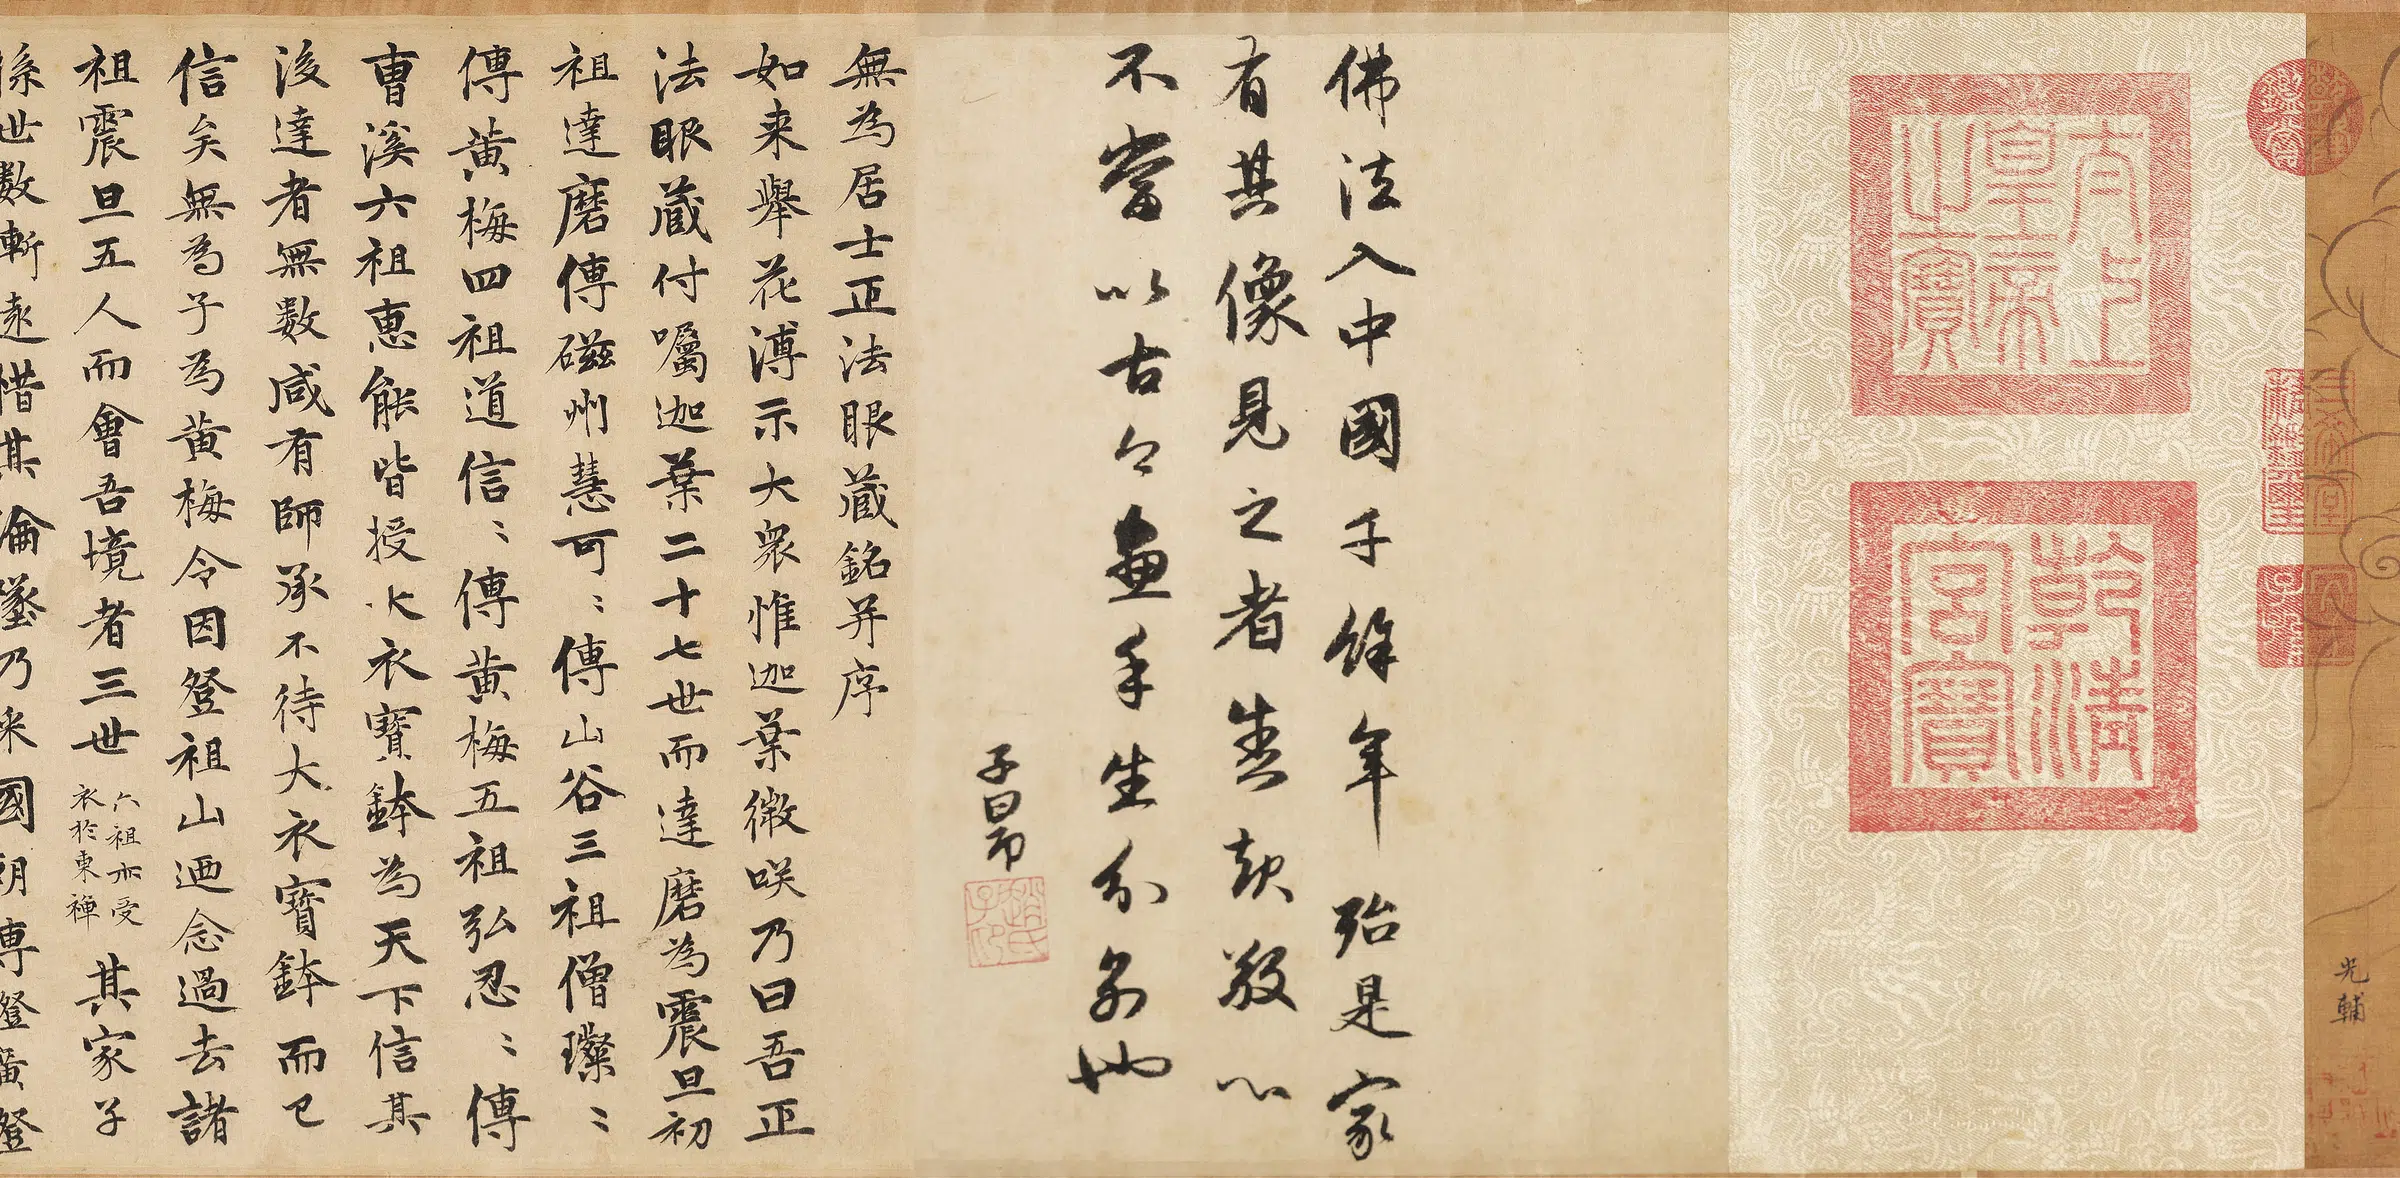 光輔
太上皇帝之寶
乾清宮寶
佛法入中國千餘年殆是家
有其像見之者生歡敬心
不當以古今畫手生分別也
子昂
趙氏子昂
無為居士正法眼藏銘并序
如来舉花溥示大衆惟迦葉微咲乃曰吾正
法眼藏付囑迦葉二十七世而達磨為震旦初
祖達磨傳磁州慧可〻傳山谷三祖僧璨〻
傳黄梅四祖道信〻傳黄梅五祖弘忍〻傳
曹溪六祖惠能皆授大衣寶鉢為天下信其
後達者無数咸有師承不待大衣寶鉢而已
信矣無為子為黄梅令因登祖山迺念過去諸
祖震旦五人而會吾境者三世六祖亦受衣於東禪其家子
孫世数漸遠惜其淪墜乃来國朝專登廣登